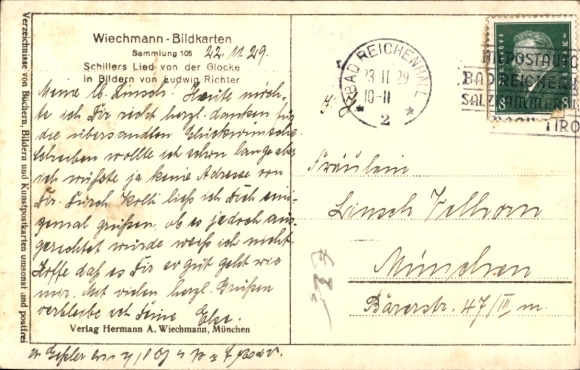 Verzeichnisse von Büchern, Bildern und Kunstpostkarten umsonst und postfrei
Wiechmann-Bildkarten
Sammlung 105
22.11.29.
Schillers Lied von der Glocke
in Bildern von Ludwig Richter
Meine lb. Linsch! Heute möch-
te ich Dir recht herzl. danken für
die übersandten Glückwünsche.
Schreiben wollte ich schon lange aber
ich wußte ja keine Adresse von
Dir. Durch ließ ich Dich ein-
mal grüßen, ob es jedoch aus-
gerichtet wurde weiß ich nicht.
Hoffe daß es Dir so gut geht wie
mir. Mit vielen herzl. Grüßen
verbleibe ich Deine Else.
Verlag Hermann A. Wiechmann, München
BAD REICHENHALL
23 11 29
10-11
* 2 *
POSTAUTO
BAD REICHENH
SALZ
TIRO
8 8
Fräulein
Linsch
München
47/III m.